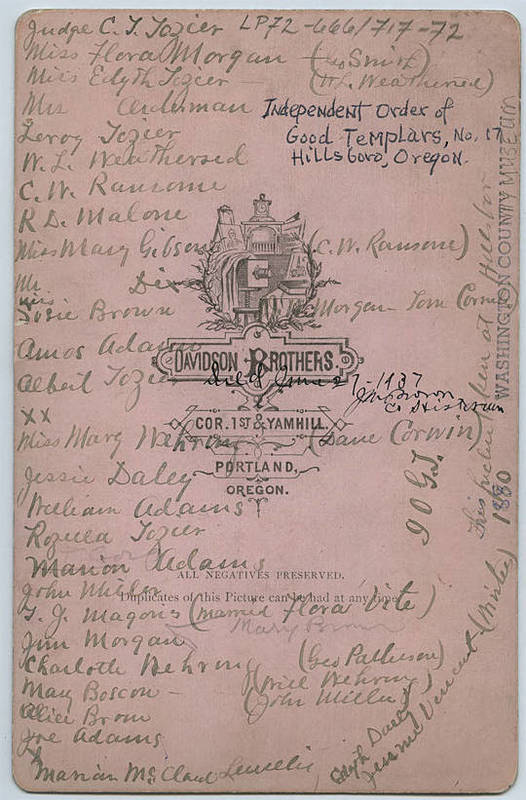 Judge C. T. Tozier LP72-666/717-72
Miss Flora Morgan - (Geo Smith)
Miss Edyth Tozier - (W. L. Weathersed)
Mrs Anderman
Independent Order of
Good Templars, No. 17
Hillsboro, Oregon.
Leroy Tozier
W. L. Weathersed
C. W. Ransome
R. D. Malone
Miss Mary Gibson (C. W. Ransome)
Mr Dix
Miss
Susie Brown Morgan - Tom Corn
Amos Adams
Albert Tozier
DAVIDSON BROTHERS.
COR. 1ST & YAMHILL.
PORTLAND,
OREGON.
XX
Miss Mary Wehrung (Dave Corwin)
Jessie Daley
William Adams
Rozella Tozier
Marion Adams
ALL NEGATIVES PRESERVED.
Duplicates of this Picture can be had at any time.
John Miller
T. J. Magoris (married Flora Vite)
Mary Brown
Jim Morgan
Charlotte Wehrung (Geo Patterson)
(Will Wehrung)
May Boscow - (John Miller)
Alice Brown
Joe Adams
Marian McClaud Lewellis
Edyth
Jennie Vincent
I O G T
This picture taken at Hillsboro
1880
WASHINGTON COUNTY MUSEUM